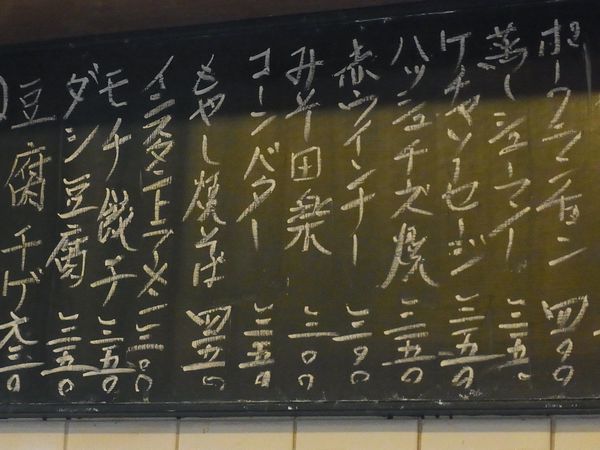 ポークランチョン 四九〇
蒸しシューマイ 三五〇
ケチャソーセージ 三五〇
ハッシュチーズ焼 三五〇
赤ウインナー 三九〇
みそ田楽 三〇〇
コーンバター 三五〇
もやし焼そば 四五〇
インスタントラーメン 三〇〇
モチ餃子 三五〇
ダシ豆腐 三五〇
豆腐チゲ 六三〇